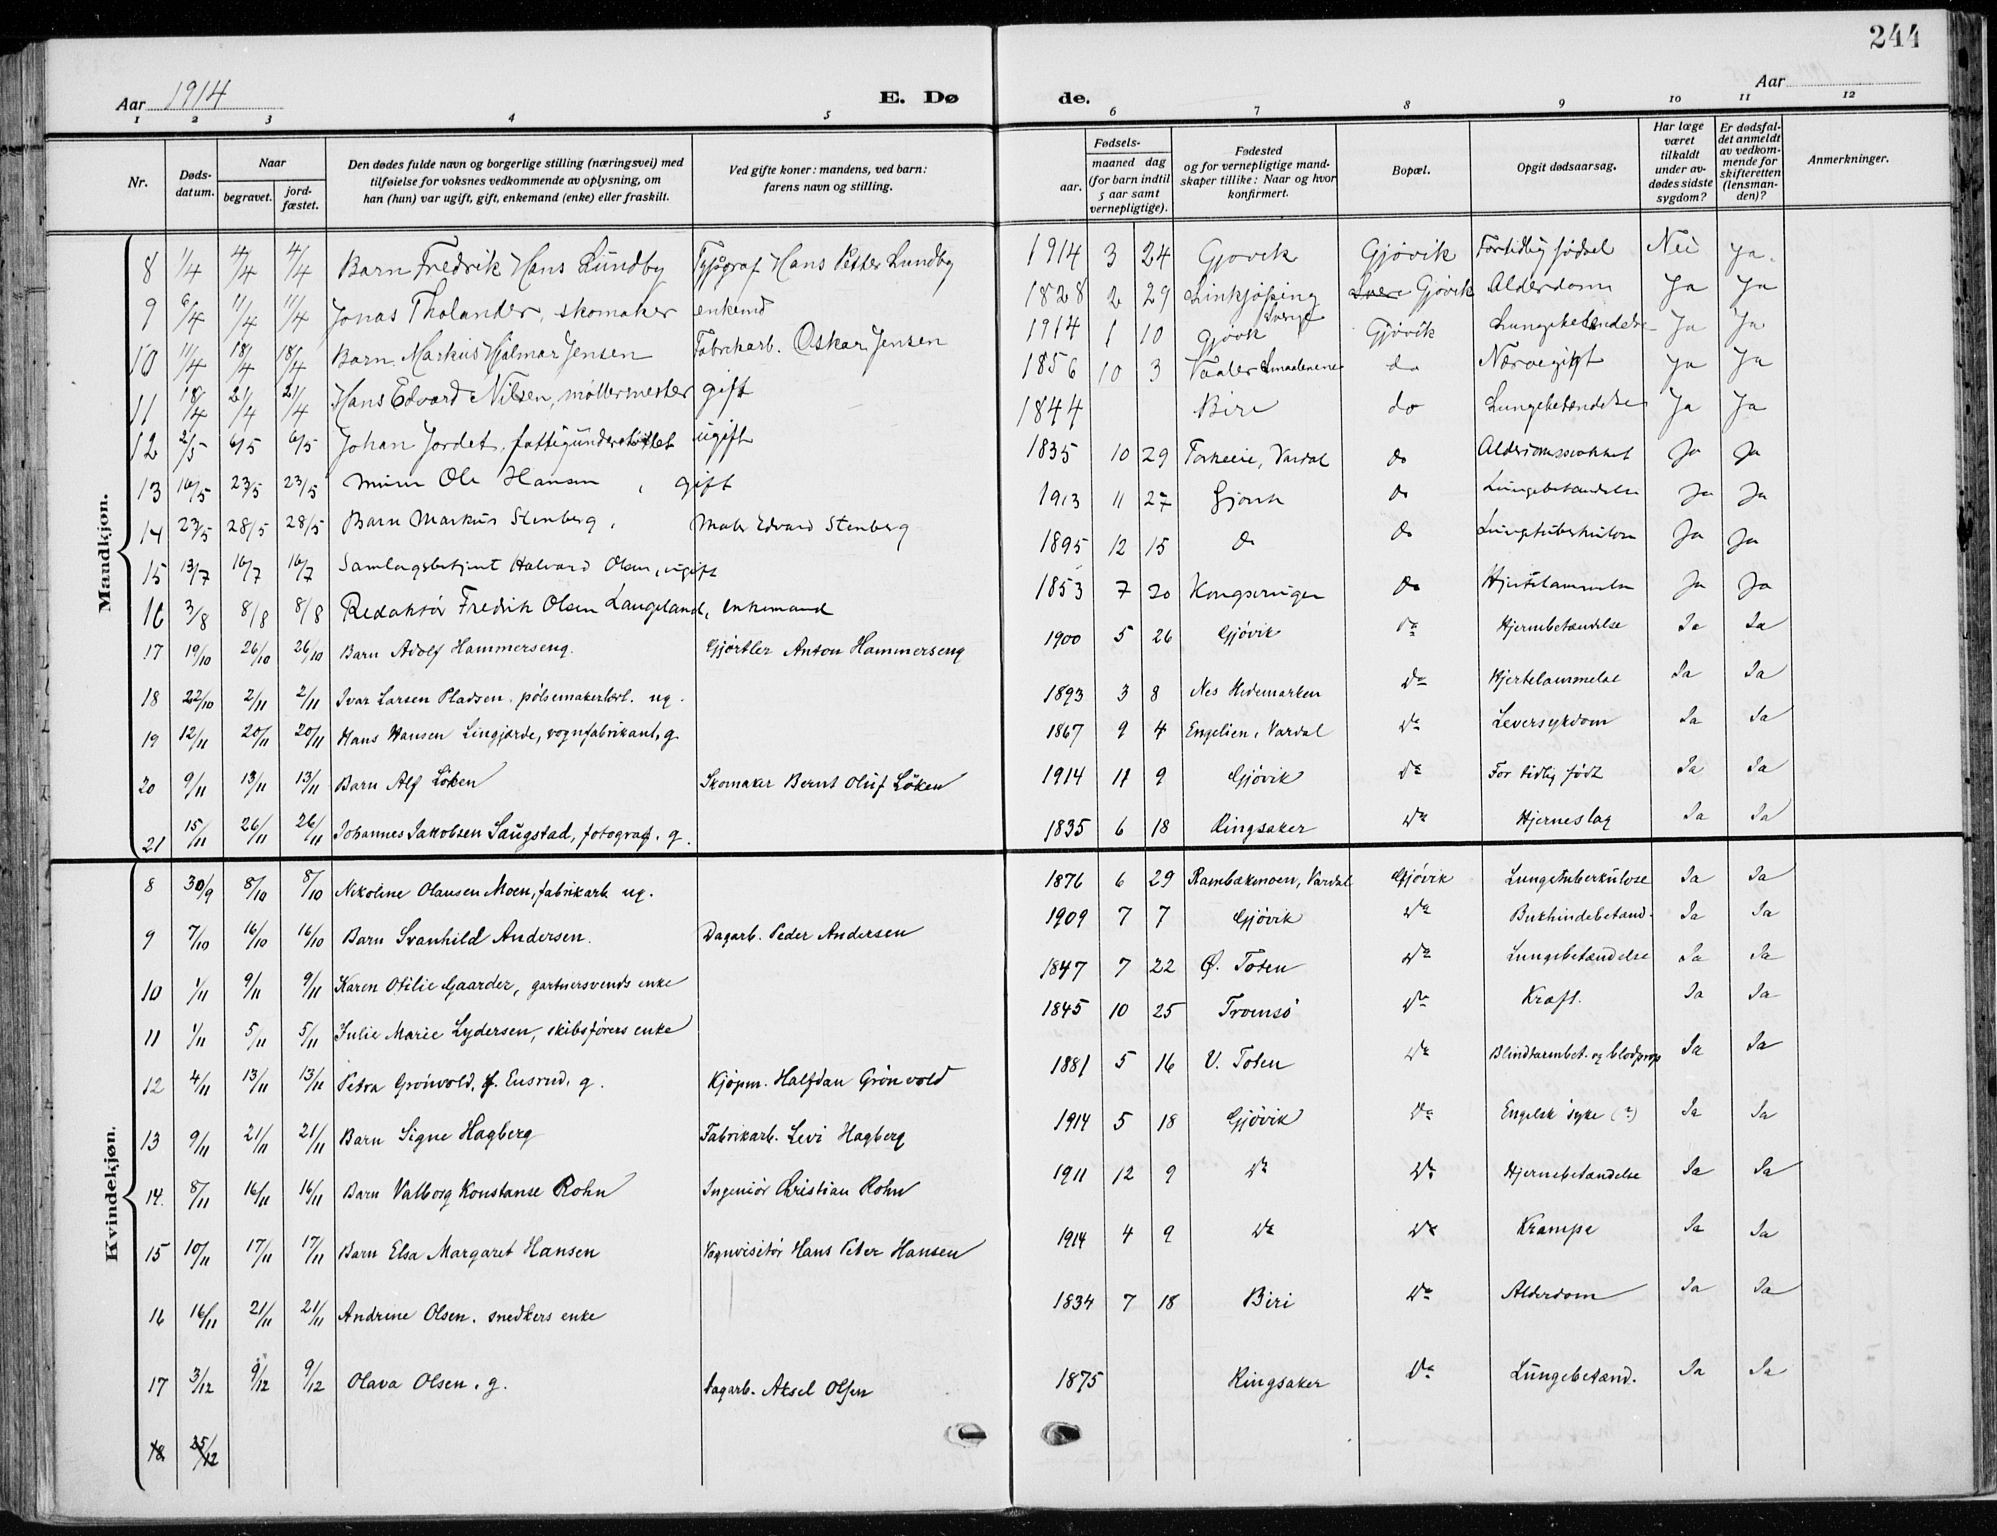 244
Aar 1914
E. Dø
de.
Aar
1 2 3 4 5 6 7 8 9 10 11 12
Nr.
Døds-
datum.
Naar
begravet.
jord-
fæstet.
Den dødes fulde navn og borgerlige stilling (næringsvei) med
tilføielse for voksnes vedkommende av oplysning, om
han (hun) var ugift, gift, enkemand (enke) eller fraskilt.
Ved gifte koner: mandens, ved barn:
farens navn og stilling.
Fødsels-
aar.
maaned dag
(for barn indtil
5 aar samt
vernepligtige).
Fødested
og for vernepligtige mand-
skaper tillike: Naar og hvor
konfirmert.
Bopæl.
Opgit dødsaarsag.
Har læge
været
tilkaldt
under av-
dødes sidste
sygdom?
Er dødsfal-
det anmeldt
av vedkom-
mende for
skifteretten
(lensman-
den)?
Anmerkninger.
Mandkjøn.
8 1/4 4/4 4/4 Barn Fredrik Hans Lundby Typograf Hans Petter Lundby 1914 3 24 Gjøvik Gjøvik Fortidlig fødsel Nei ja.
9 6/4 11/4 11/4 Jonas Tholander, skomaker enkemd 1828 2 29 Linkjøping Sverige Gjøvik Alderdom Ja Ja
10 11/4 18/4 18/4 Barn Markus Hjalmar Jensen Fabrikarb. Oskar Jensen 1914 1 10 Gjøvk Gjøvik Lungebetændelse Ja Ja
11 18/4 21/4 21/4 Hans Edvard Nilsen, møllermester gift 1856 10 3 Vaaler Smaalenene do Nærvegigt Ja Ja
12 2/5 6/5 6/5 Johan Jordet, fattigunderstøttet ugift 1844 Biri do Lungebetændelse Ja Ja
13 16/5 23/5 23/5 Murer Ole Hansen, gift 1835 10 29 Vardal do Alderdomssvakhet Ja Ja
14 23/5 28/5 28/5 Barn Markus Stenberg, Maler Edvard Stenberg 1913 11 27 Gjøvik do Lungebetændelse Ja Ja
15 13/7 16/7 16/7 Samlagsbetjent Halvard Olsen, ugift 1895 12 15 do do Lungetuberkulose Ja Ja
16 3/8 8/8 8/8 Redaktør Fredrik Olsen Langeland, enkemand 1853 7 20 Kongsvinger do Hjertelammelse Ja Ja
17 19/10 26/10 26/10 Barn Adolf Hammerseng. Gjørtler Anton Hammerseng 1900 5 26 Gjøvik Do Hjernebetændelse Ja Ja
18 22/10 2/11 2/11 Ivar Larsen Pladsen. pølsemakerlærl. ug. 1893 3 8 Nes Hedemarken Do Hjertelammelse Ja Ja
19 12/11 20/11 20/11 Hans Hansen Lingjærde, vognfabrikant, g. 1867 9 4 Engelien, Vardal Do Leversykdom Ja Ja
20 9/11 13/11 13/11 Barn Alf Løken Skomaker Bernt Oluf Løken 1914 11 9 Gjøvik Do For tidlig født Ja Ja
21 15/11 26/11 26/11 Johannes Jakobsen Saugstad, fotograf. g. 1835 6 18 Ringsaker Do Hjerneslag Ja Ja
Kvindekjøn.
8 30/9 8/10 8/10 Nikoline Olausen Moen, fabrikarb. ug. 1876 6 29 Rambækmoen, Vardal Gjøvik Lungetuberkulose Ja Ja
9 7/10 16/10 16/10 Barn Svanhild Andersen. Dagarb. Peder Andersen 1909 7 7 Gjøvik Do Bukhindebetænd. Ja Ja
10 1/11 9/11 9/11 Karen Otilie Gaarder, gartnersvends enke 1847 7 22 Ø. Toten Do Lungebetændelse Ja Ja
11 1/11 5/11 5/11 Julie Marie Lydersen, skibsførers enke 1845 10 25 Tromsø Do Kræft. Ja Ja
12 4/11 13/11 13/11 Petra Grønvold, f. Ensrud, g. Kjøpm. Halfdan Grønvold 1881 5 16 V. Toten Do Blindtarmbet. og blodprop Ja Ja
13 9/11 21/11 21/11 Barn Signe Hagberg Fabrikarb. Levi Hagberg 1914 5 18 Gjøvik Do Engelsk syke (?) Ja Ja
14. 8/11 16/11 16/11 Barn Valborg Konstanse Rohn Ingeniør Christian Rohn 1911 12 9 Do Do Hjernebetændelse Ja Ja
15 10/11 17/11 17/11 Barn Elsa Margaret Hansen Vognvisitør Hans Peter Hansen 1914 4 9 Do Do Krampe Ja Ja
16 16/11 21/11 21/11 Andrine Olsen. snedkers enke 1834 7 18 Biri Do Alderdom Ja Ja
17 3/12 9/12 9/12 Olava Olsen. g. Dagarb. Aksel Olsen 1875 Ringsaker Do Lungebetænd. Ja Ja
18 25/12